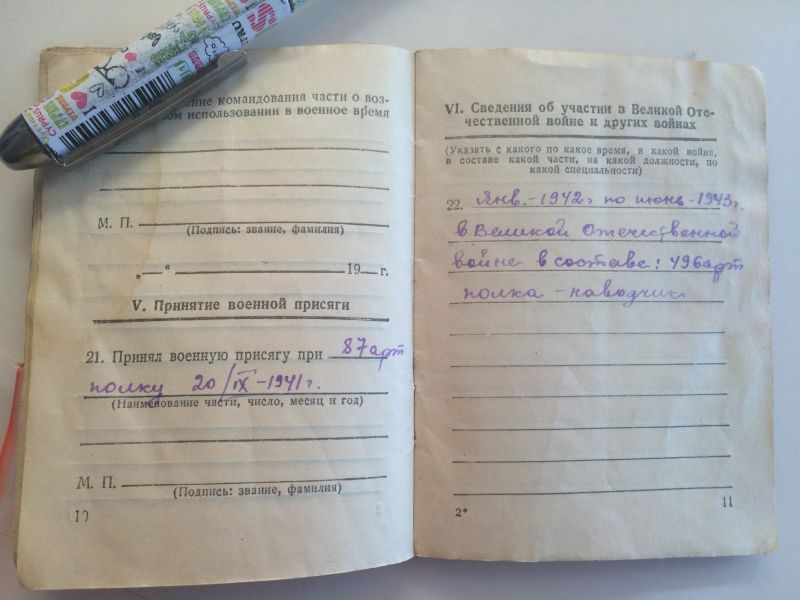 ение командования части о воз-
ом использовании в военное время
М. П.
(Подпись: звание, фамилия)
„ — “ 19 г.
V. Принятие военной присяги
21. Принял военную присягу при 87 арт
полку 20/IX-1941 г.
(Наименование части, число, месяц и год)
М. П.
(Подпись: звание, фамилия)
10
VI. Сведения об участии в Великой Оте-
чественной войне и других войнах
(Указать с какого по какое время, в какой войне,
в составе какой части, на какой должности, по
какой специальности)
22. Янв.-1942 г по июнь-1943 г.
в Великой Отечественной
войне в составе: 496 арт
полка - наводчик
2*
11
CYPRUS